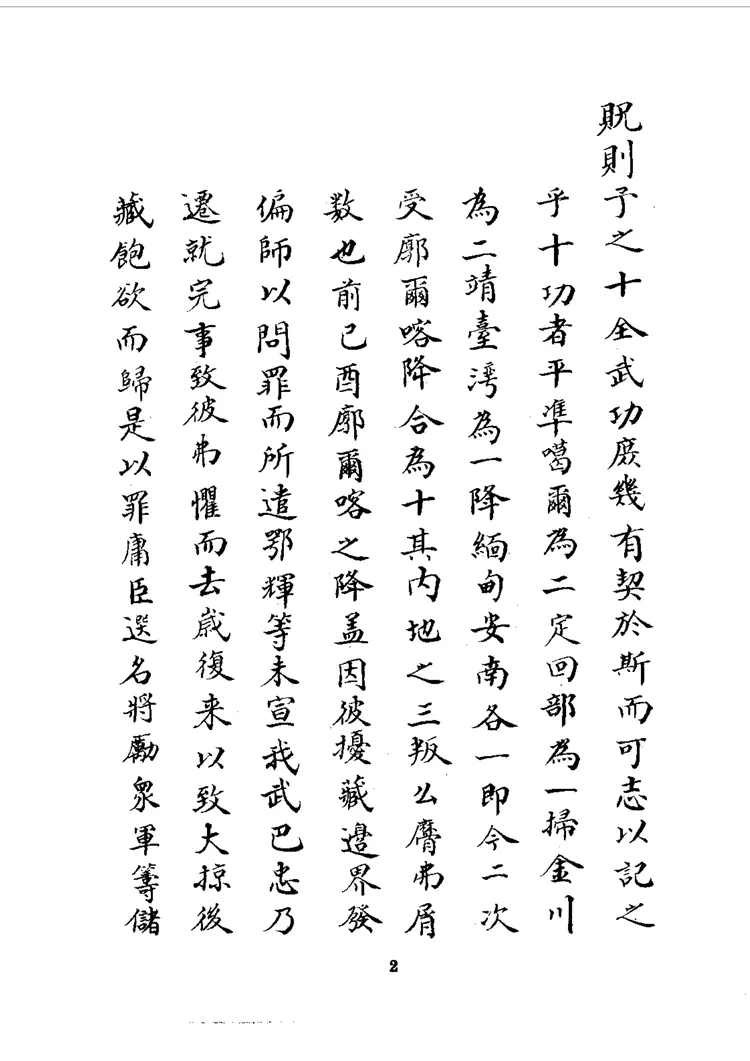 貺則予之十全武功庶幾有契於斯而可志以記之
乎十功者平準噶爾為二定回部為一掃金川
為二靖臺灣為一降緬甸安南各一即今二次
受廓爾喀降合為十其內地之三叛么䯢弗屑
数也前已酉廓爾喀之降盖因彼擾藏邉界發
偏師以問罪而所遣鄂輝等未宣我武巴忠乃
遷就完事致彼弗懼而去歲復来以致大掠後
藏飽欲而歸是以罪庸臣選名將勵衆軍籌儲
2